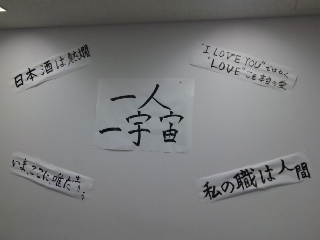 日本酒は熱燗
"I LOVE YOU"ではなく
"LOVE"こそ本当の愛
一人
一宇宙
いま、ここに、唯だ
私の職は人間